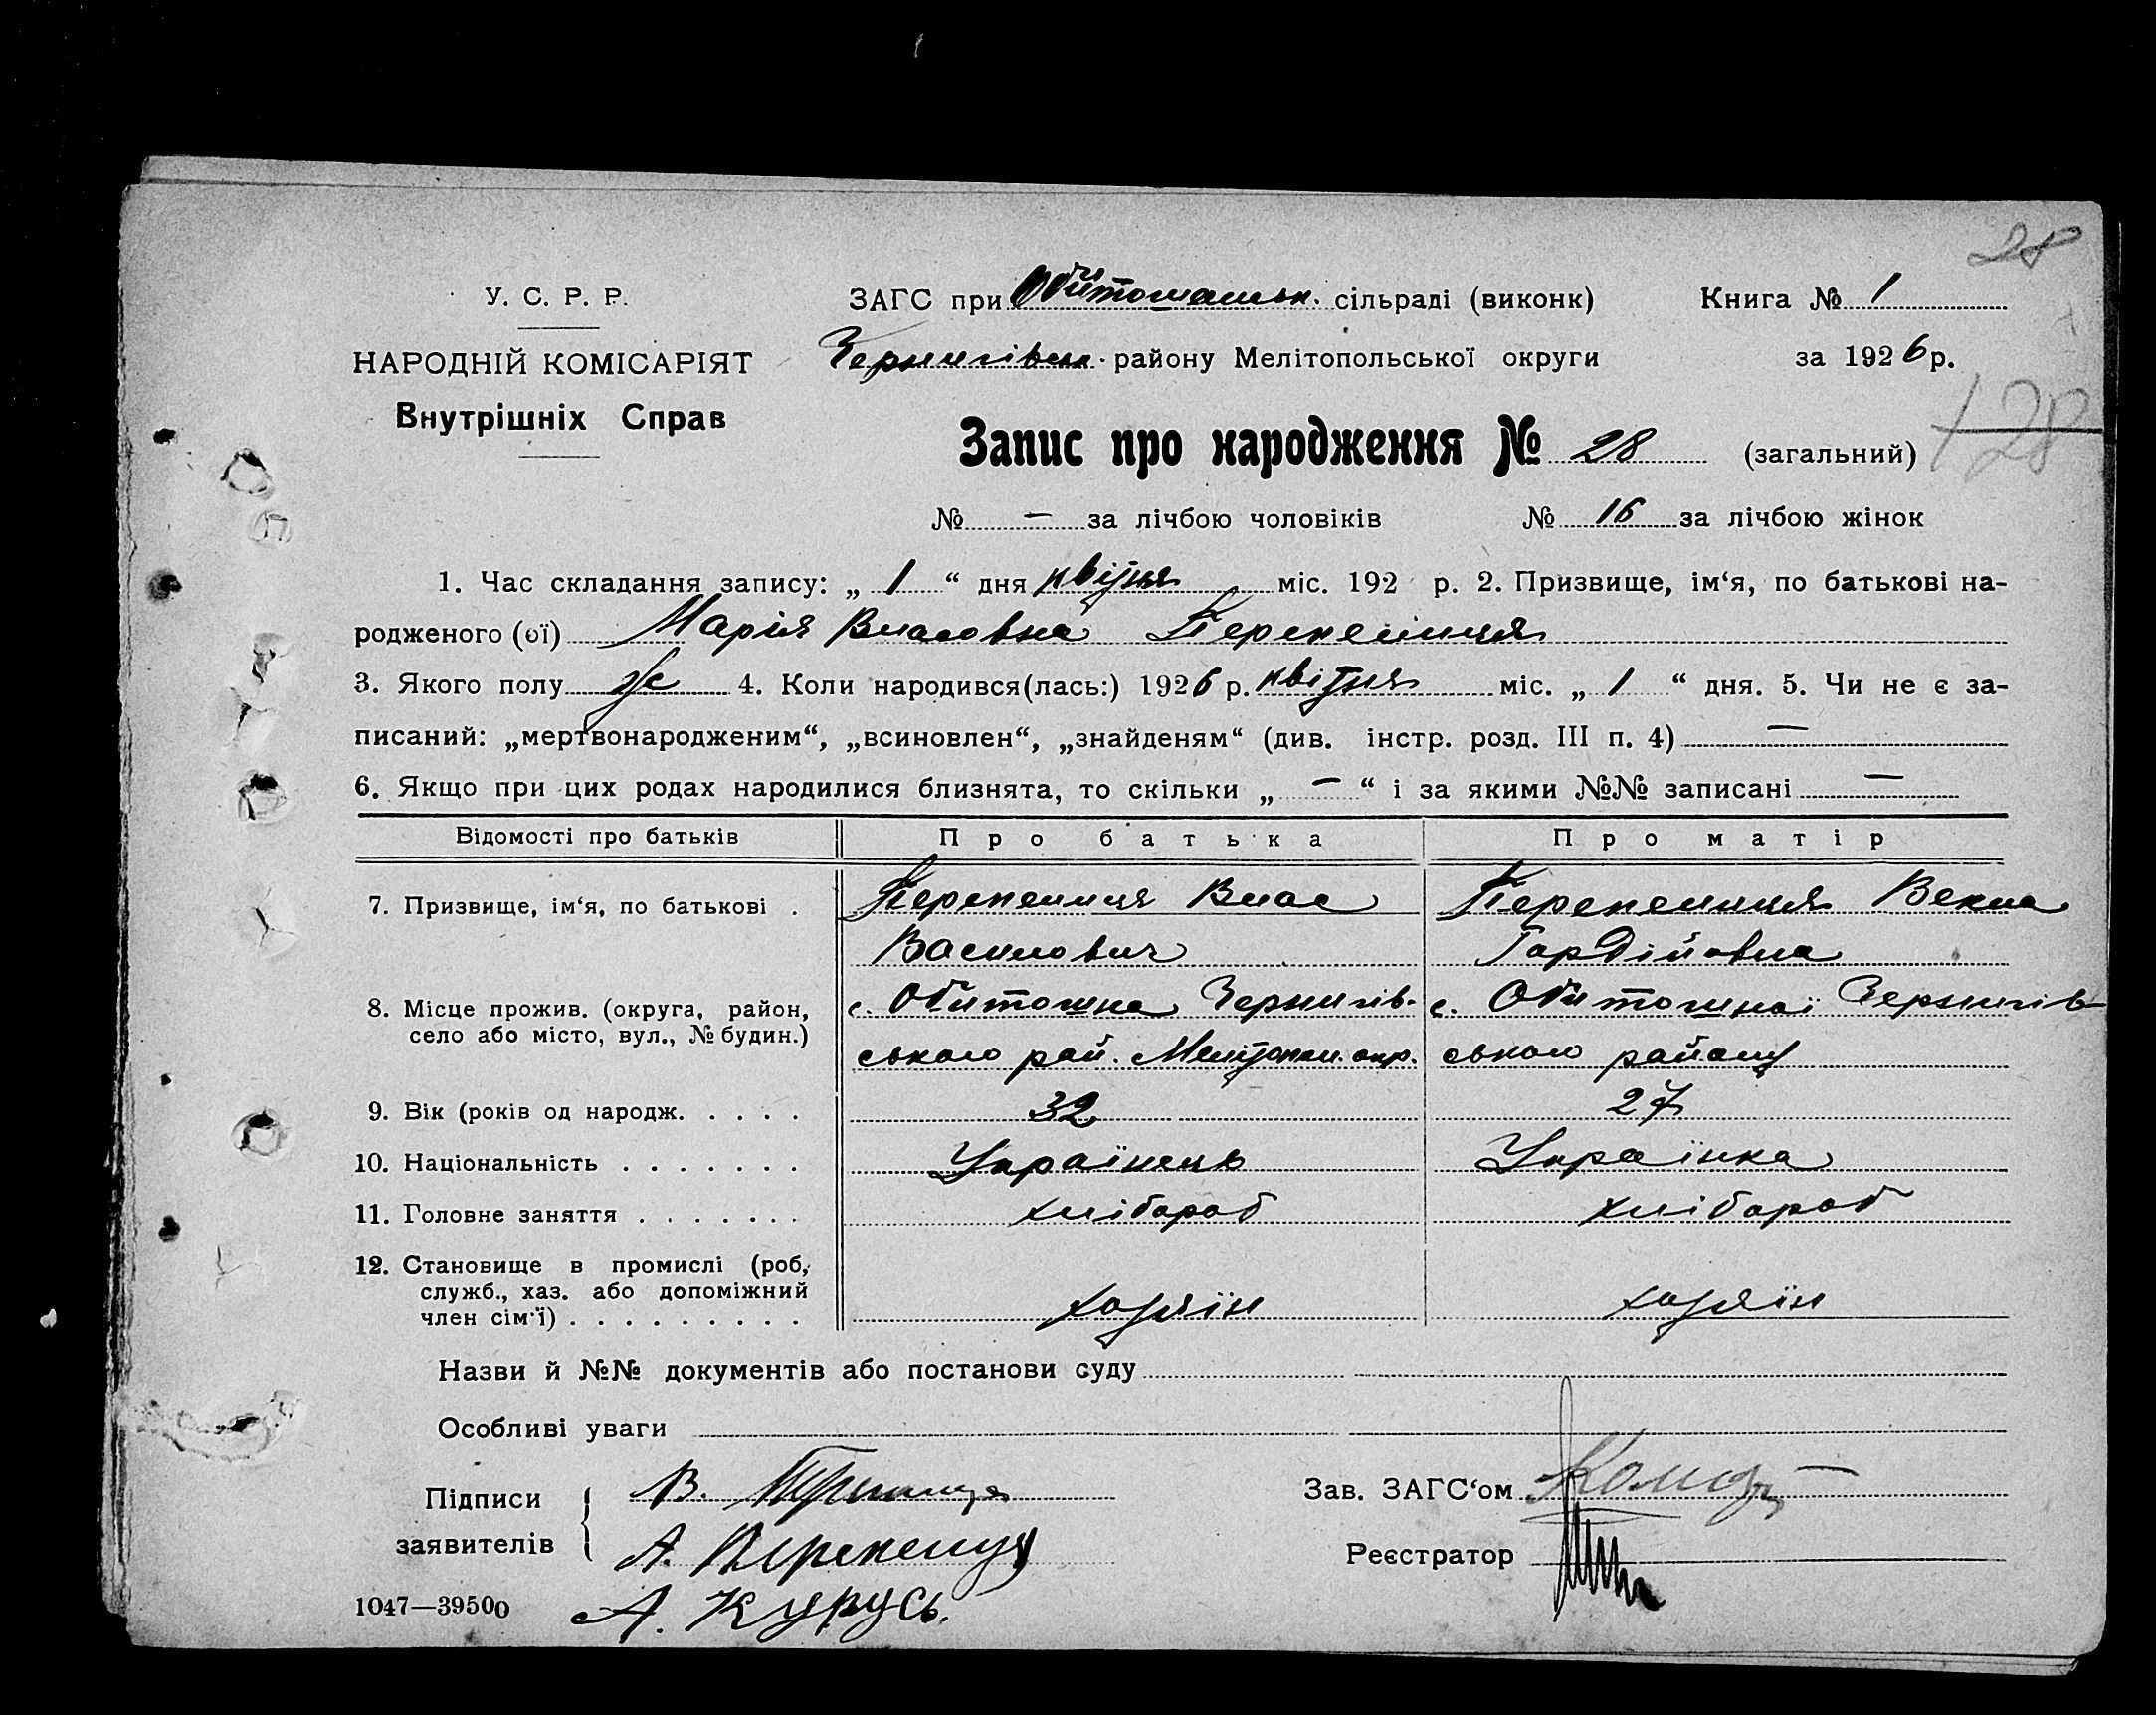 28
У. С. Р. Р.
ЗАГС при Обитошанськ. сільраді (виконк)
Книга № 1
НАРОДНІЙ КОМІСАРІЯТ
Чернигівськ. району Мелітопольської округи
за 1926 р.
Внутрішніх Справ
Запис про народження № 28 (загальний)
128
№ — за лічбою чоловіків № 16 за лічбою жінок
1. Час складання запису: „ 1 “ дня квітня міс. 192 р. 2. Призвище, ім‘я, по батькові на-
родженого (ої) Марія Власовна Перепелиця
3. Якого полу ж 4. Коли народився(лась:) 1926 р. квітня міс. „ 1 “ дня. 5. Чи не є за-
писаний: „мертвонародженим“, „всиновлен“, „знайденям“ (див. інстр. розд. III п. 4) —
6. Якщо при цих родах народилися близнята, то скільки „ — “ і за якими №№ записані —
Відомості про батьків Про батька Про матір
7. Призвище, ім‘я, по батькові . Перепелиця Влас Перепелиця Векла
Василович Гордійовна
8. Місце прожив. (округа, район, с. Обиточна Чернигів- с. Обиточної Чернигів-
село або місто, вул., № будин.)
ського рай. Мелітопол. окр. ського району
9. Вік (років од народж. . . . . 32 27
10. Національність . . . . . . . Українець Українка
11. Головне заняття . . . . . . . хлібороб хлібороб
12. Становище в промислі (роб,
служб., хаз. або допоміжний
член сім‘ї) . . . . . . . . . хазяїн хазяїн
Назви й №№ документів або постанови суду
Особливі уваги
Підписи В. Перепелиця
Зав. ЗАГС‘ом
заявителів А. Перепелиця
Реєстратор
1047—39500 А. Курусь.